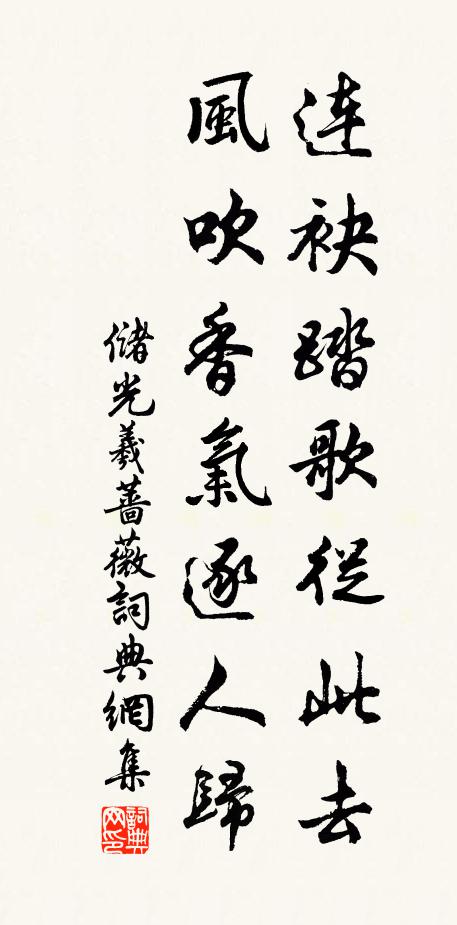 連袂踏歌從此去
風吹香氣逐人歸
儲光羲薔薇詞典網集
詞典
网印